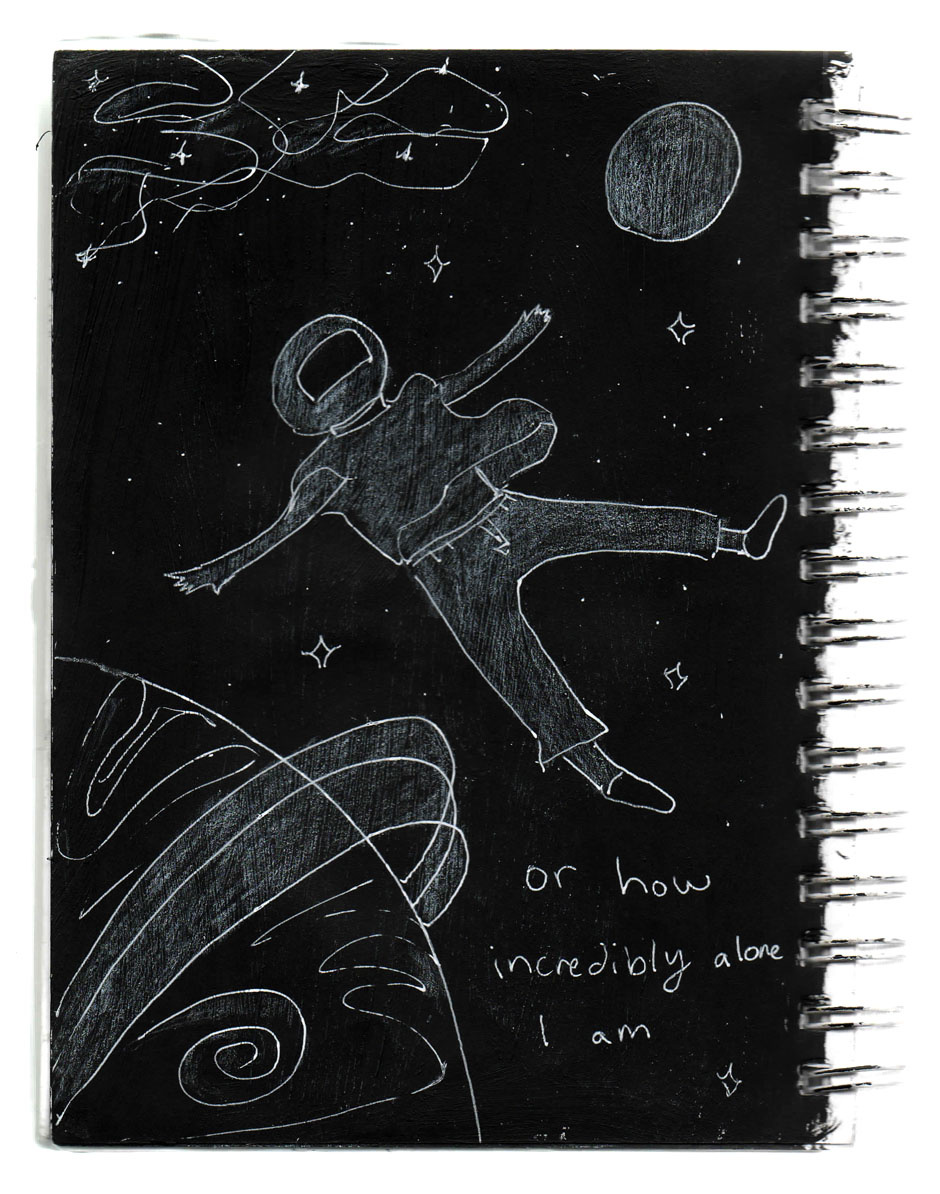 or how
incredibly alone
I am